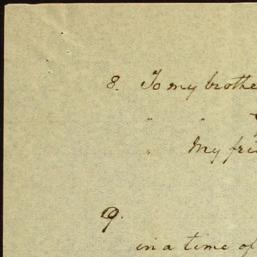 8. To my brothe
" "
" My frie
9.
in a time of